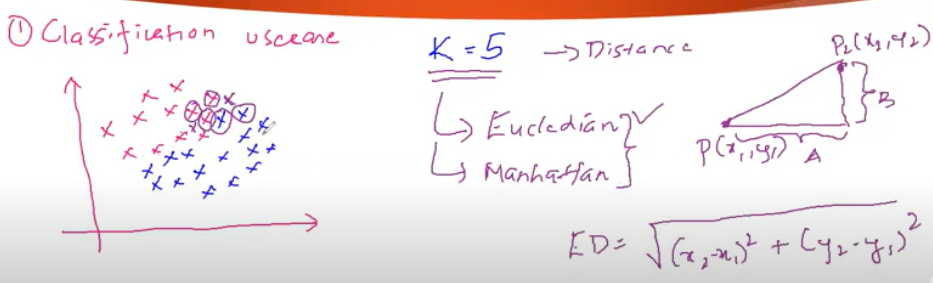 ① Classification usecase
K = 5 → Distance
↳ Eucledian ✓
↳ Manhattan
P₂(x₂, y₂)
B
P(x₁, y₁) A
ED = √(x₂-x₁)² + (y₂-y₁)²